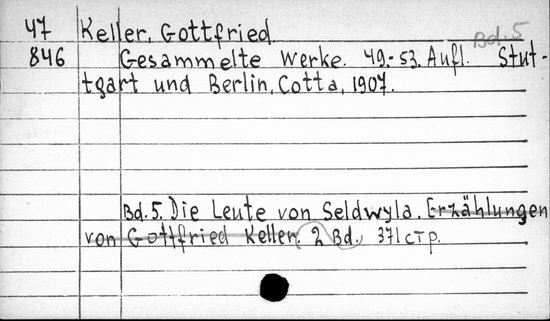 47 Keller, Gottfried
Bd. 5
846 Gesammelte Werke. 49.-53. Aufl. Stut-
tgart und Berlin, Cotta, 1907.
Bd. 5. Die Leute von Seldwyla. Erzählungen
von Gottfried Keller. 2 Bd., 371 стр.